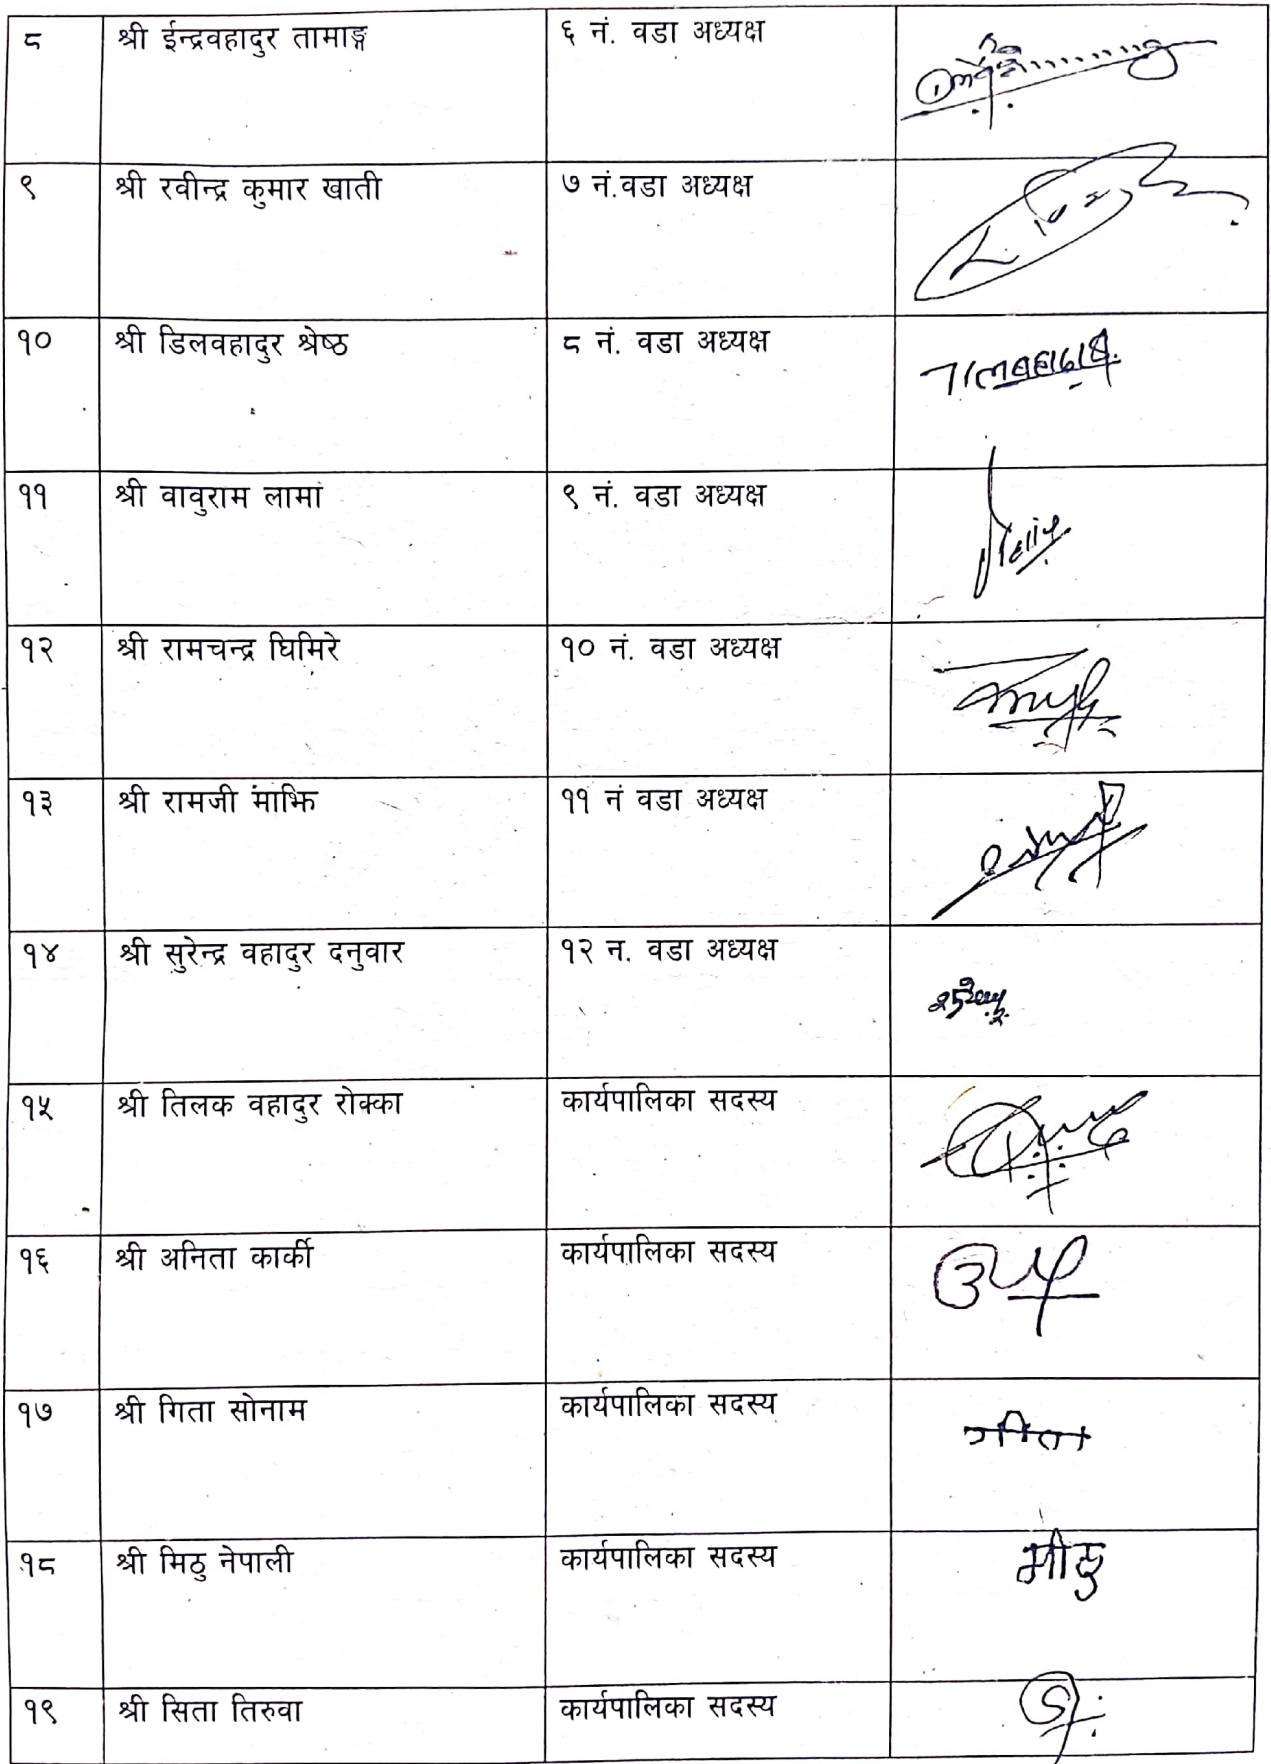 ८ श्री ईन्द्रवहादुर तामाङ्ग ६ नं. वडा अध्यक्ष
९ श्री रवीन्द्र कुमार खाती ७ नं.वडा अध्यक्ष
१० श्री डिलवहादुर श्रेष्ठ ८ नं. वडा अध्यक्ष
११ श्री वावुराम लामा ९ नं. वडा अध्यक्ष
१२ श्री रामचन्द्र घिमिरे १० नं. वडा अध्यक्ष
१३ श्री रामजी माझि ११ नं वडा अध्यक्ष
१४ श्री सुरेन्द्र वहादुर दनुवार १२ न. वडा अध्यक्ष
१५ श्री तिलक वहादुर रोक्का कार्यपालिका सदस्य
१६ श्री अनिता कार्की कार्यपालिका सदस्य
१७ श्री गिता सोनाम कार्यपालिका सदस्य गीता
१८ श्री मिठु नेपाली कार्यपालिका सदस्य मीठु
१९ श्री सिता तिरुवा कार्यपालिका सदस्य